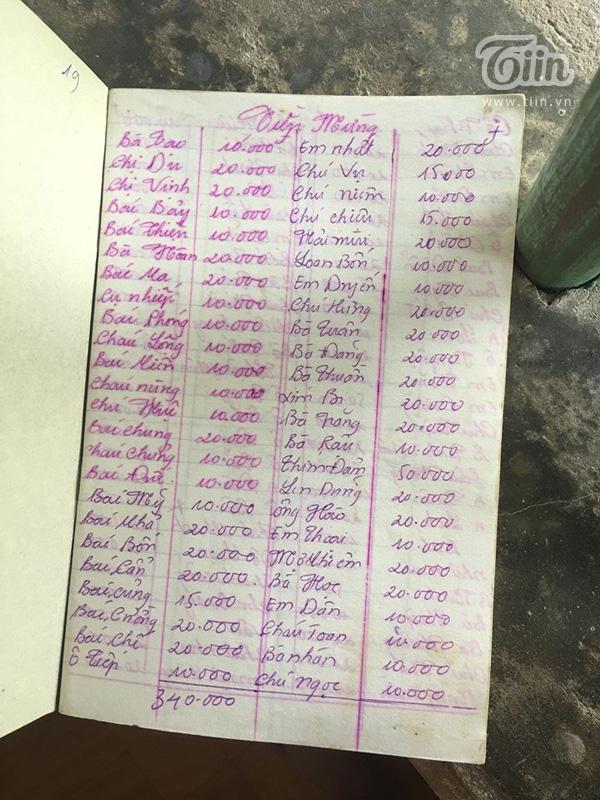 19
Tiin
www.tiin.vn
Tiền Mừng
Bà Tao 10.000 Em nhất 20.000
Chị Du 20.000 Chú Vụ 15.000
Chị Vinh 20.000 Chú niềm 10.000
Bác Bảy 10.000 Chú chiều 15.000
Bác Thiện 10.000 Hải mùi 20.000
Bà Hoàn 20.000 Loan Bốn 10.000
Bác Ma 20.000 Em 10.000
Cụ 10.000 Chú Hưng 20.000
Bác Phong 10.000 Bà Tuấn 20.000
Cháu 10.000 Bà Đang 20.000
Bác Miền 10.000 Bà Thuần 20.000
Cháu nừng 10.000 20.000
Chú 10.000 Bà 20.000
Bác chung 20.000 Bà Rấu 10.000
cháu chung 10.000 Thím Đam 50.000
Bác 10.000 20.000
Bác Mỹ 10.000 ông Hào 20.000
Bác Nhã 20.000 Em Thoai 10.000
Bác Bốn 20.000 20.000
Bác Cần 20.000 Bà Học 20.000
Bác cung 15.000 Em Dần 10.000
Bác 20.000 Cháu Toan 10.000
Bác Chi 20.000 Bà nhàn 10.000
Ô Tiếp 10.000 Chú ngọc 10.000
340.000